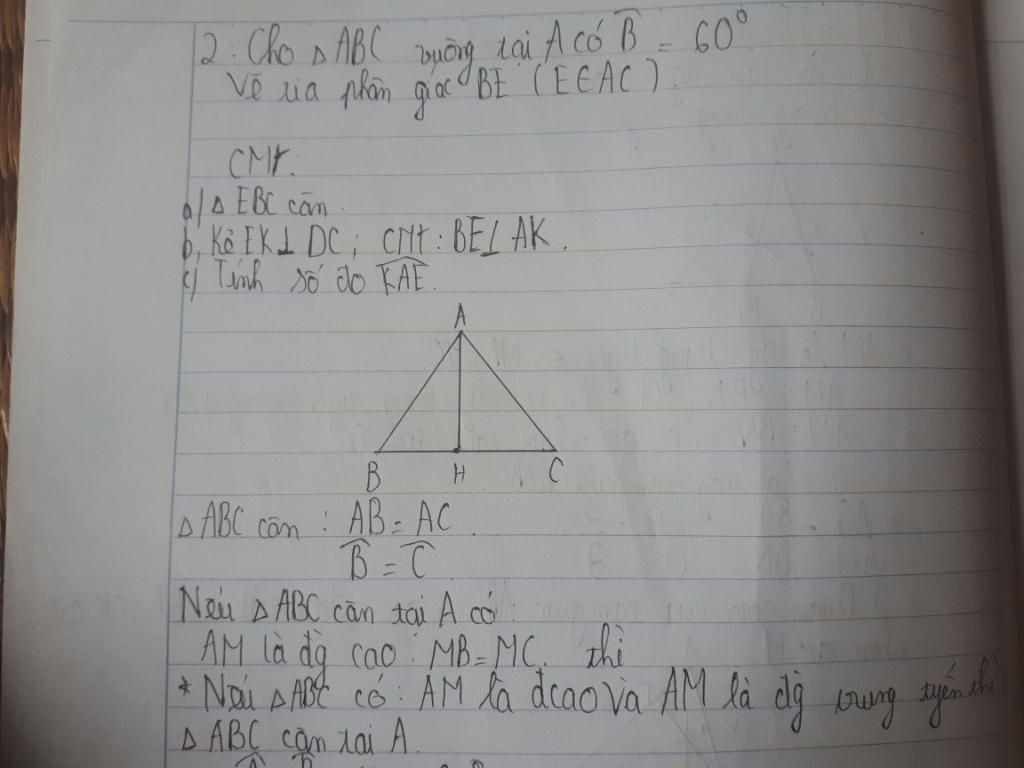 2: Cho △ABC vuông tại A có B̂ = 60°
Vẽ tia phân giác BE (E∈AC).
CMt.
a) △EBC cân.
b, Kẻ EK⊥DC; CMt: BE⊥AK.
c) Tính số đo K͡AE.
A
B
H
C
△ABC cân: AB = AC.
B̂ = Ĉ
Nếu △ABC cân tại A có:
AM là đg cao: MB=MC. thì
* Nếu △ABC có: AM là đcao và AM là đg trung tuyến thì
△ABC cân tại A.